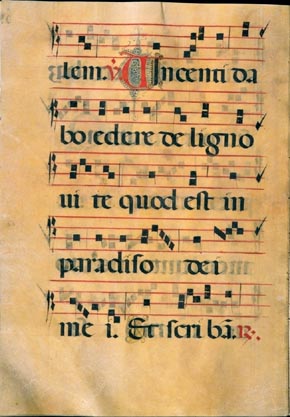 lem. ℣ Uincenti da
bo edere de ligno
ui te quod est in
paradiso dei
me i. Et scri bā. ℟.